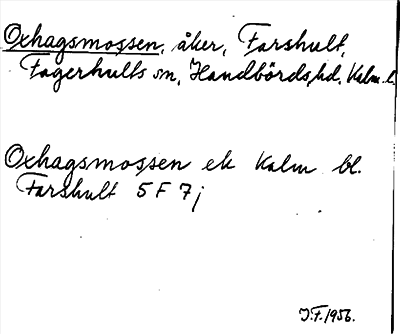 Oxhagsmossen, åker, Farshult,
Fagerhults sn, Handbörds hd. Kalm. l.
Oxhagsmossen ek Kalm bl.
Farshult 5 F 7 j
J.F. 1956.